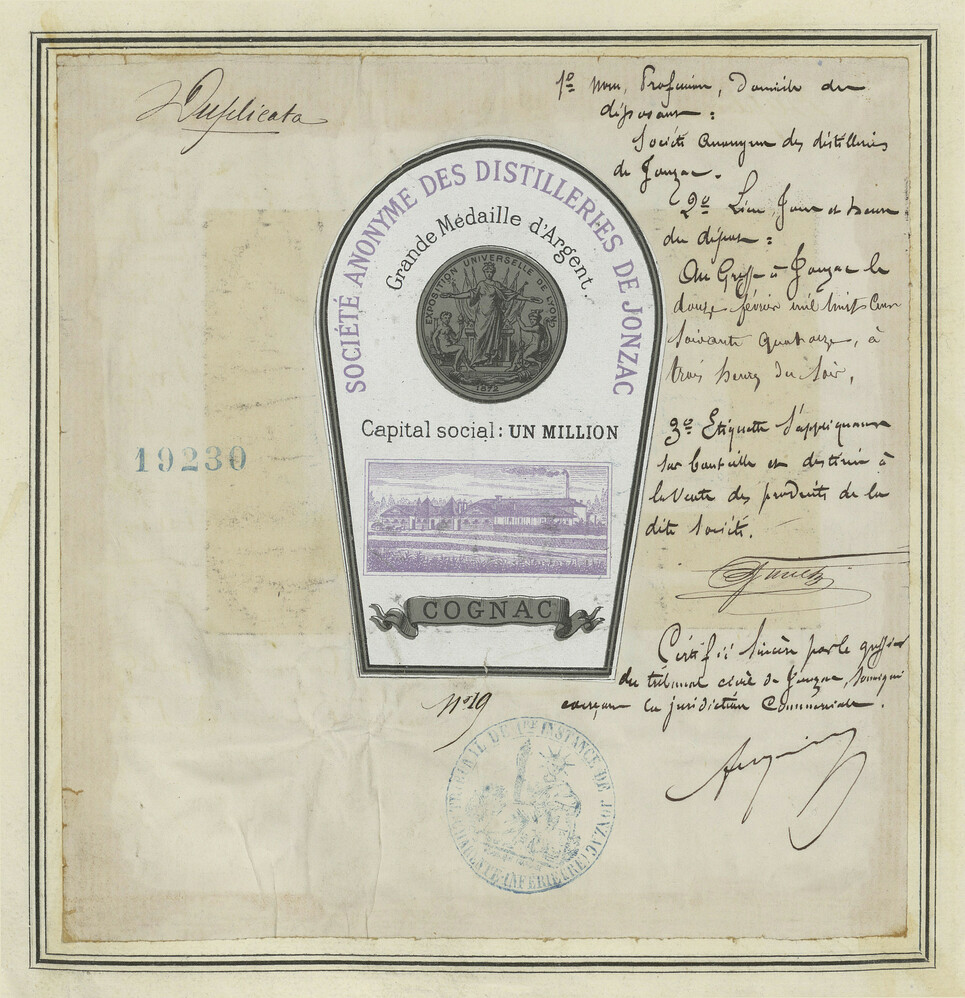 Duplicata
1º nom, Profession, Domicile du
déposant :
Société Anonyme des distilleries
de Jonzac.
2º Lieu, Jour et heure
du dépôt :
Au Greffe à Jonzac le
douze février mil huit cent
soixante quatorze, à
trois heures du soir.
3º Etiquette s'appliquant
sur bouteille et destinée à
la vente des produits de la
dite société.
Certifié sincère par le greffier
du tribunal civil de Jonzac, soussigné
exerçant la juridiction Commerciale.
SOCIÉTÉ ANONYME DES DISTILLERIES DE JONZAC
Grande Médaille d'Argent.
EXPOSITION UNIVERSELLE DE LYON
1872
Capital social : UN MILLION
COGNAC
19230
Nº 19
TRIBUNAL DE 1RE INSTANCE DE JONZAC
(CHARENTE-INFÉRIEURE)